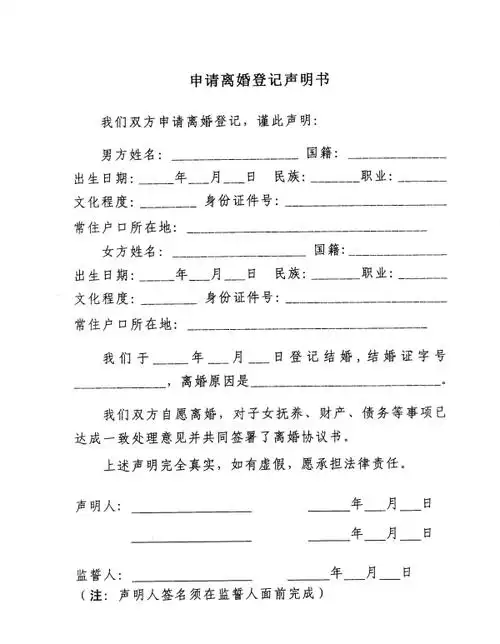 申请离婚登记声明书
我们双方申请离婚登记，谨此声明：
男方姓名：____________ 国籍：____________
出生日期：_____年___月___日 民族：_______职业：_______
文化程度：________ 身份证件号：____________________
常住户口所在地：______________________________
女方姓名：____________ 国籍：____________
出生日期：_____年___月___日 民族：_______职业：_______
文化程度：________ 身份证件号：____________________
常住户口所在地：______________________________
我们于_____年___月___日登记结婚，结婚证字号
____________，离婚原因是________________________。
我们双方自愿离婚，对子女抚养、财产、债务等事项已
达成一致处理意见并共同签署了离婚协议书。
上述声明完全真实，如有虚假，愿承担法律责任。
声明人：_______________ _____年___月___日
_______________ _____年___月___日
监誓人：_______________ _____年___月___日
（注：声明人签名须在监誓人面前完成）